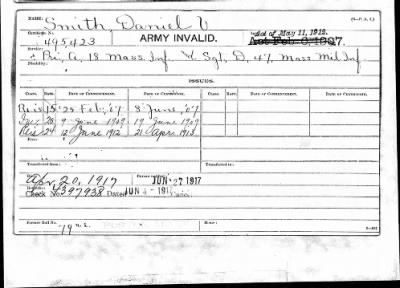 NAME: Smith, Daniel V
Certificate No. ARMY INVALID. Act of May 11, 1912.
495,423 Act Feb. 6, 1907.
Service: Pri, A, 18 Mass. Inf. & Sgt, D, 47 Mass Mil Inf
Disability:
ISSUES.
CLASS. RATE. DATE OF COMMENCEMENT. DATE OF CERTIFICATE. CLASS. RATE. DATE OF COMMENCEMENT. DATE OF CERTIFICATE.
Reis 15 25 Feb., '07 8 June, '07
Incr 20 9 June 1909 19 June 1909
Reis 24 12 June 1912 21 Apr. 1913
Transferred from
Died Apr. 20, 1917 JUN 27 1917
Bureau
Check No. 4397938 Dated JUN 4 - 1917 Canc.
Former Roll No. 19 Home:
3-402